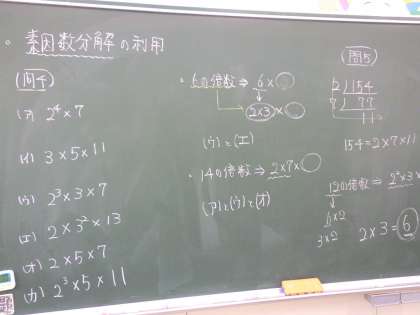 ・素因数分解の利用
(問4)
(ア) 2⁴×7
(イ) 3×5×11
(ウ) 2³×3×7
(エ) 2×3²×13
(オ) 2×5×7
(カ) 2³×5×11
・6の倍数⇒6×◯
2×3×◯
(ウ)と(エ)
・14の倍数⇒2×7×◯
(ア)と(ウ)と(オ)
(問5)
2)154
7) 77
11
154=2×7×11
12の倍数⇒2²×3×
6×2
3×2
2×3=6